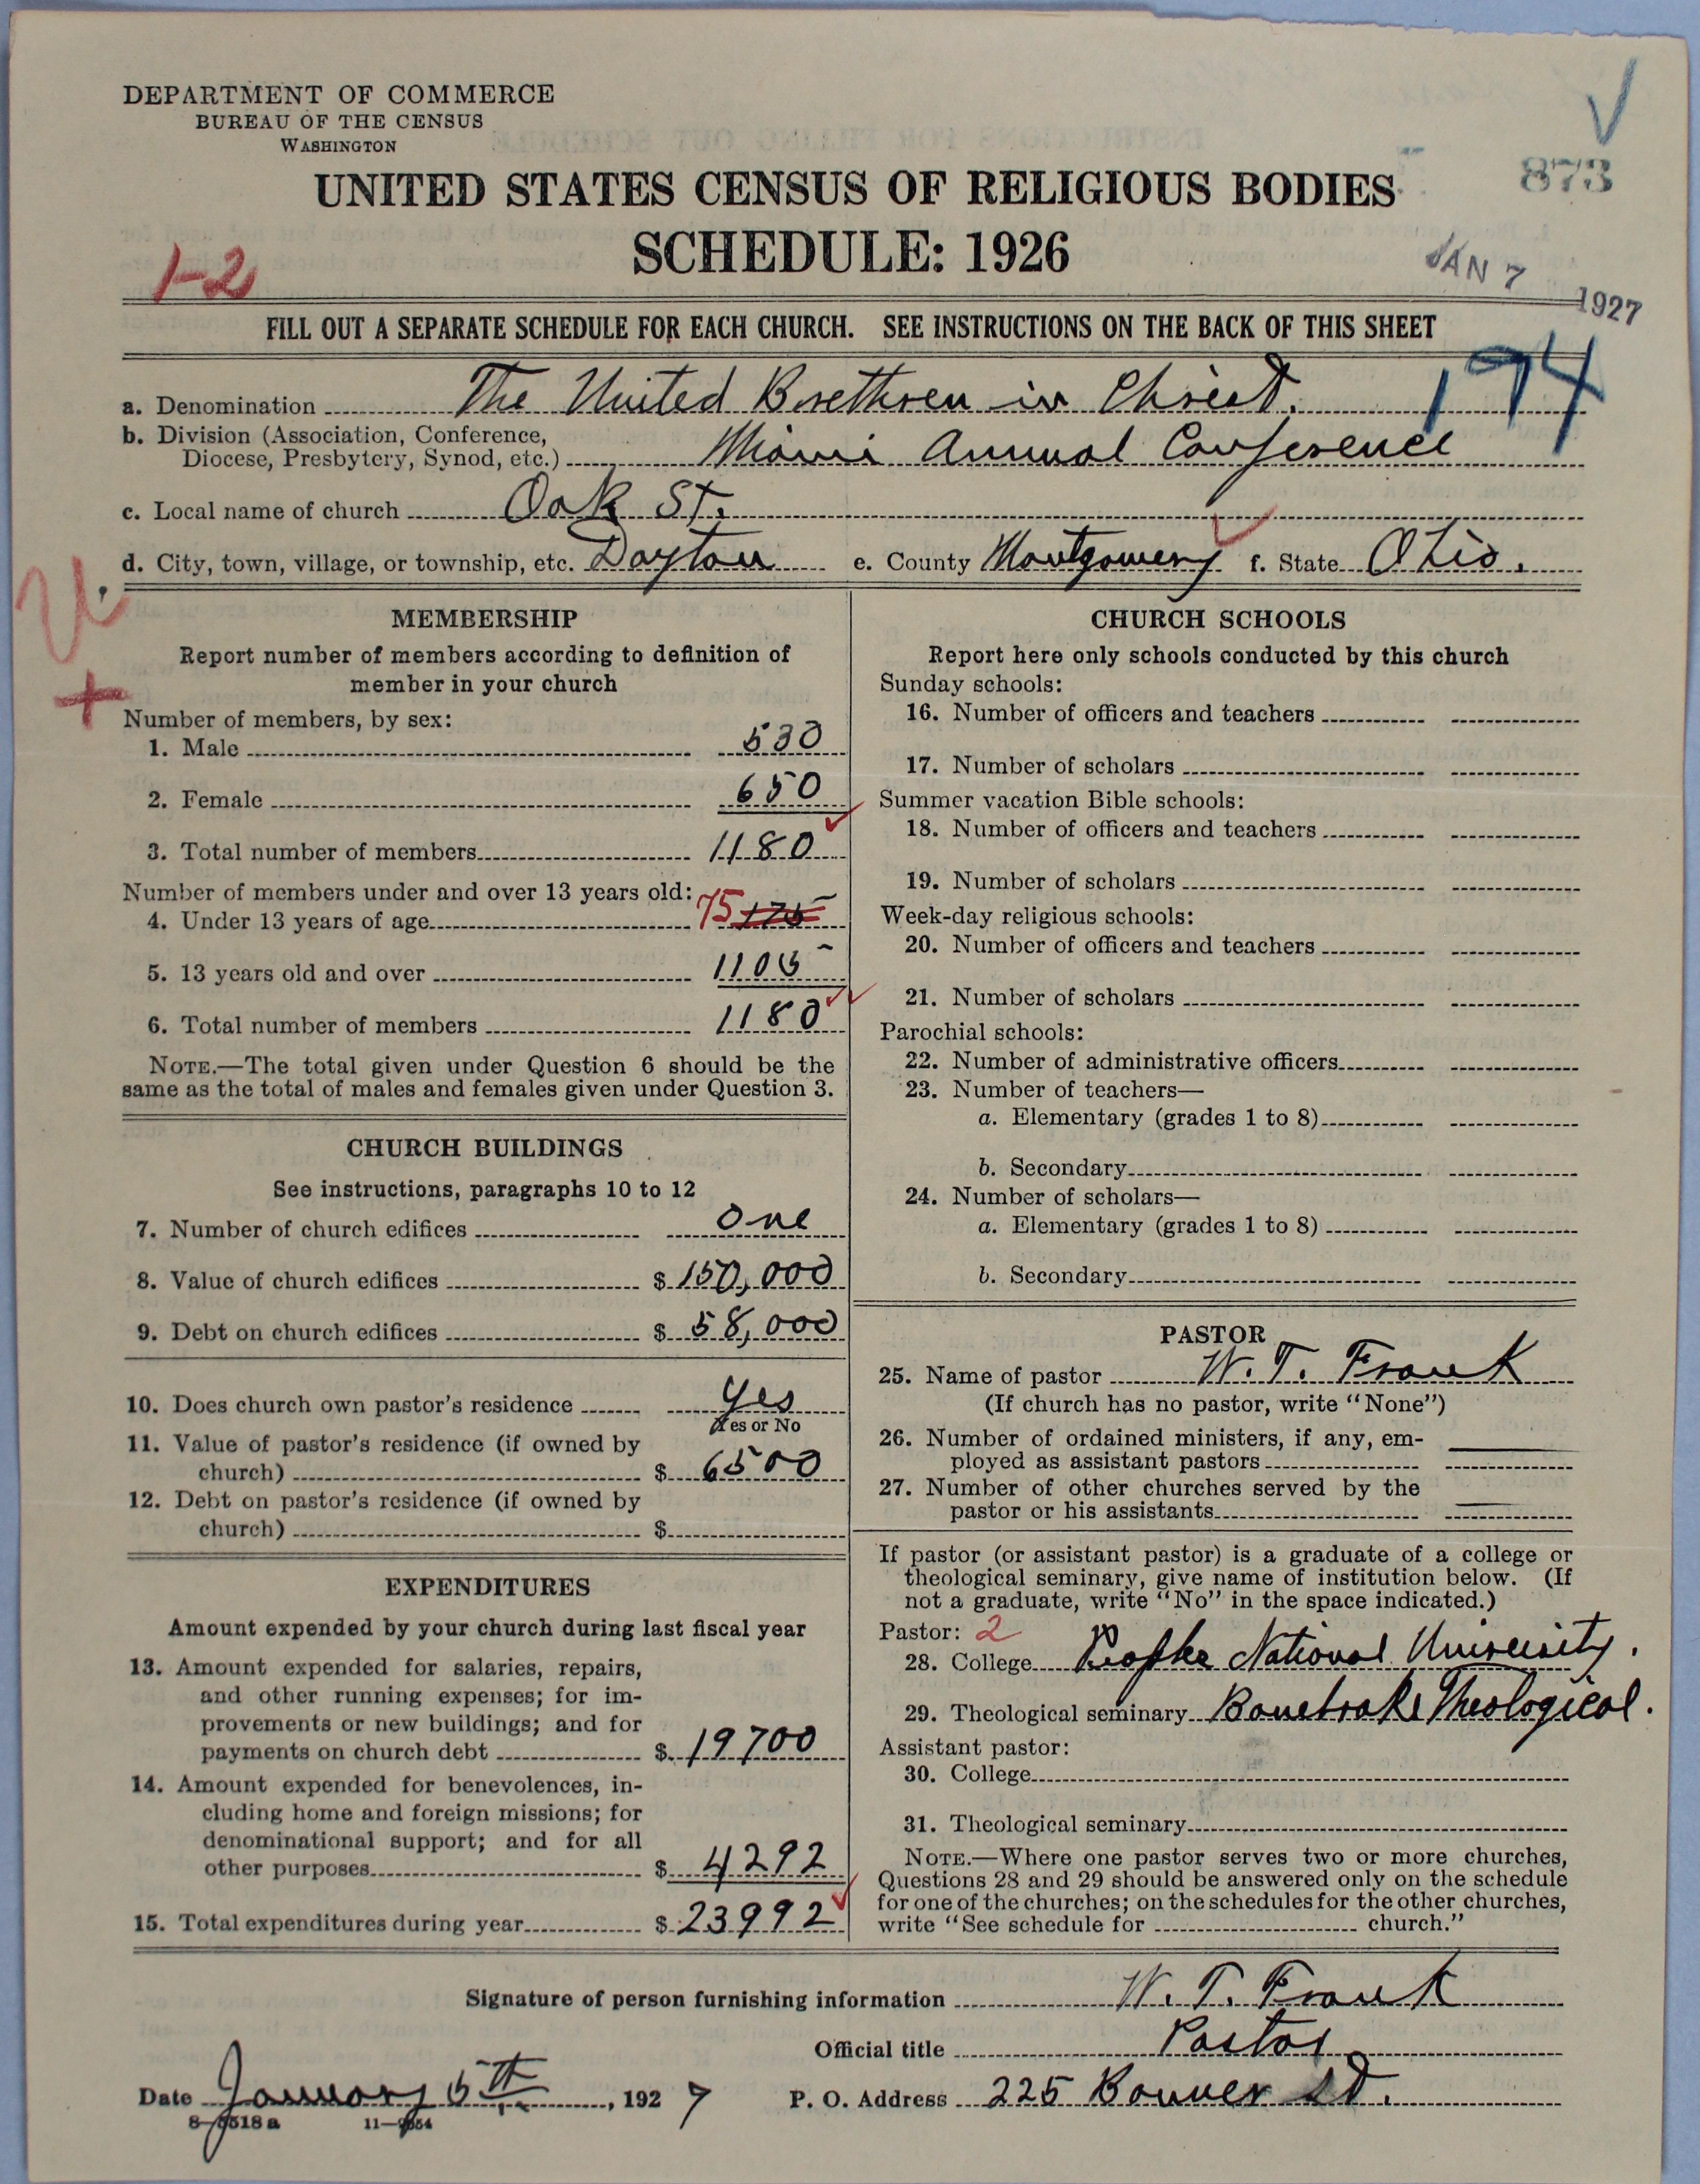 DEPARTMENT OF COMMERCE
BUREAU OF THE CENSUS
WASHINGTON
UNITED STATES CENSUS OF RELIGIOUS BODIES
873
SCHEDULE: 1926
1-2
JAN 7 1927
FILL OUT A SEPARATE SCHEDULE FOR EACH CHURCH. SEE INSTRUCTIONS ON THE BACK OF THIS SHEET
174
a. Denomination The United Brethren in Christ.
b. Division (Association, Conference,
Diocese, Presbytery, Synod, etc.) Miami Annual Conference
c. Local name of church Oak St.
d. City, town, village, or township, etc. Dayton e. County Montgomery f. State Ohio.
MEMBERSHIP
Report number of members according to definition of
member in your church
Number of members, by sex:
1. Male 530
2. Female 650
3. Total number of members 1180
Number of members under and over 13 years old:
4. Under 13 years of age 75 175
5. 13 years old and over 1105
6. Total number of members 1180
NOTE.—The total given under Question 6 should be the
same as the total of males and females given under Question 3.
CHURCH BUILDINGS
See instructions, paragraphs 10 to 12
7. Number of church edifices One
8. Value of church edifices $ 150,000
9. Debt on church edifices $ 58,000
10. Does church own pastor's residence Yes
Yes or No
11. Value of pastor's residence (if owned by
church) $ 6500
12. Debt on pastor's residence (if owned by
church) $
EXPENDITURES
Amount expended by your church during last fiscal year
13. Amount expended for salaries, repairs,
and other running expenses; for im-
provements or new buildings; and for
payments on church debt $ 19700
14. Amount expended for benevolences, in-
cluding home and foreign missions; for
denominational support; and for all
other purposes $ 4292
15. Total expenditures during year $ 23992
CHURCH SCHOOLS
Report here only schools conducted by this church
Sunday schools:
16. Number of officers and teachers
17. Number of scholars
Summer vacation Bible schools:
18. Number of officers and teachers
19. Number of scholars
Week-day religious schools:
20. Number of officers and teachers
21. Number of scholars
Parochial schools:
22. Number of administrative officers
23. Number of teachers—
a. Elementary (grades 1 to 8)
b. Secondary
24. Number of scholars—
a. Elementary (grades 1 to 8)
b. Secondary
PASTOR
25. Name of pastor W. T. Frank
(If church has no pastor, write "None")
26. Number of ordained ministers, if any, em-
ployed as assistant pastors
27. Number of other churches served by the
pastor or his assistants
If pastor (or assistant pastor) is a graduate of a college or
theological seminary, give name of institution below. (If
not a graduate, write "No" in the space indicated.)
Pastor: 2
28. College National University.
29. Theological seminary Bonebrake Theological.
Assistant pastor:
30. College
31. Theological seminary
NOTE.—Where one pastor serves two or more churches,
Questions 28 and 29 should be answered only on the schedule
for one of the churches; on the schedules for the other churches,
write "See schedule for church."
Signature of person furnishing information W. T. Frank
Official title Pastor
Date January 5th, 1927 P. O. Address 225 Bonner St.
8—5518 a 11—9554